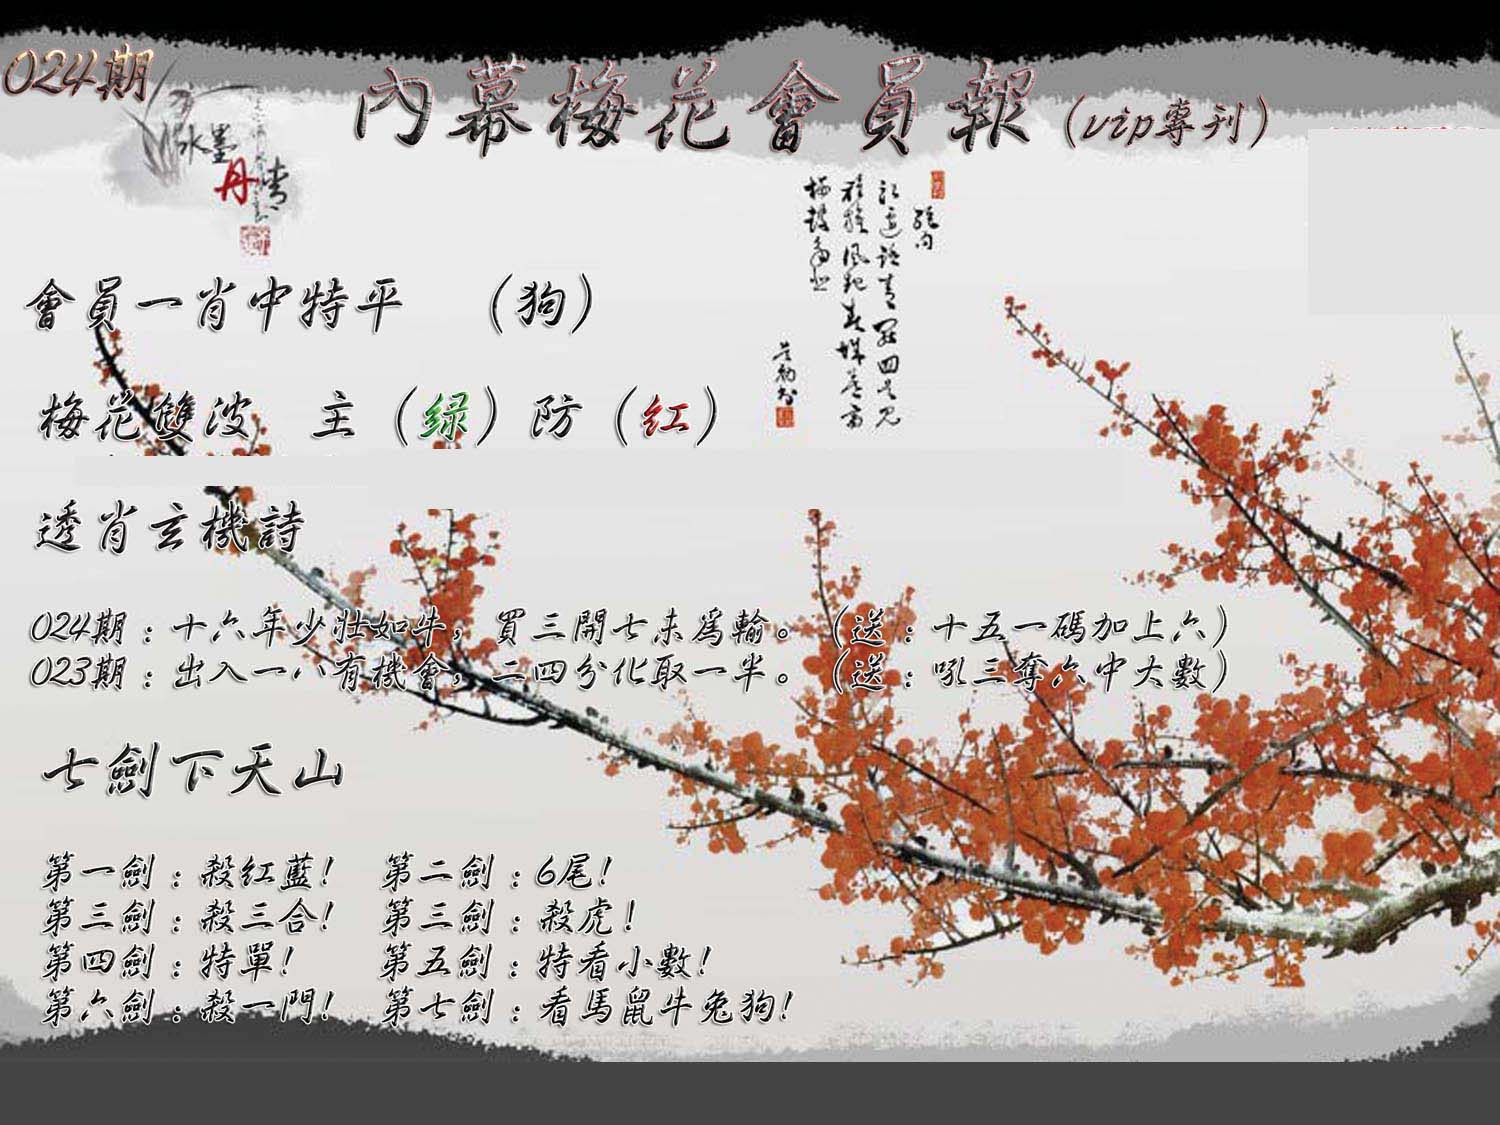 024期
內幕梅花會員報(vip專刊)
水墨
丹青
會員一肖中特平 (狗)
梅花雙波 主(绿)防(红)
透肖玄機詩
024期：十六年少壯如牛，買三開七未為輸。(送：十五一碼加上六)
023期：出入一八有機會，二四分化取一半。(送：吼三奪六中大數)
七劍下天山
第一劍：殺紅藍! 第二劍：6尾!
第三劍：殺三合! 第三劍：殺虎!
第四劍：特單! 第五劍：特看小數!
第六劍：殺一門! 第七劍：看馬鼠牛兔狗!